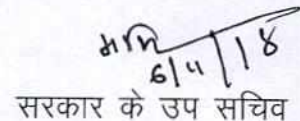 6/4/18
सरकार के उप सचिव